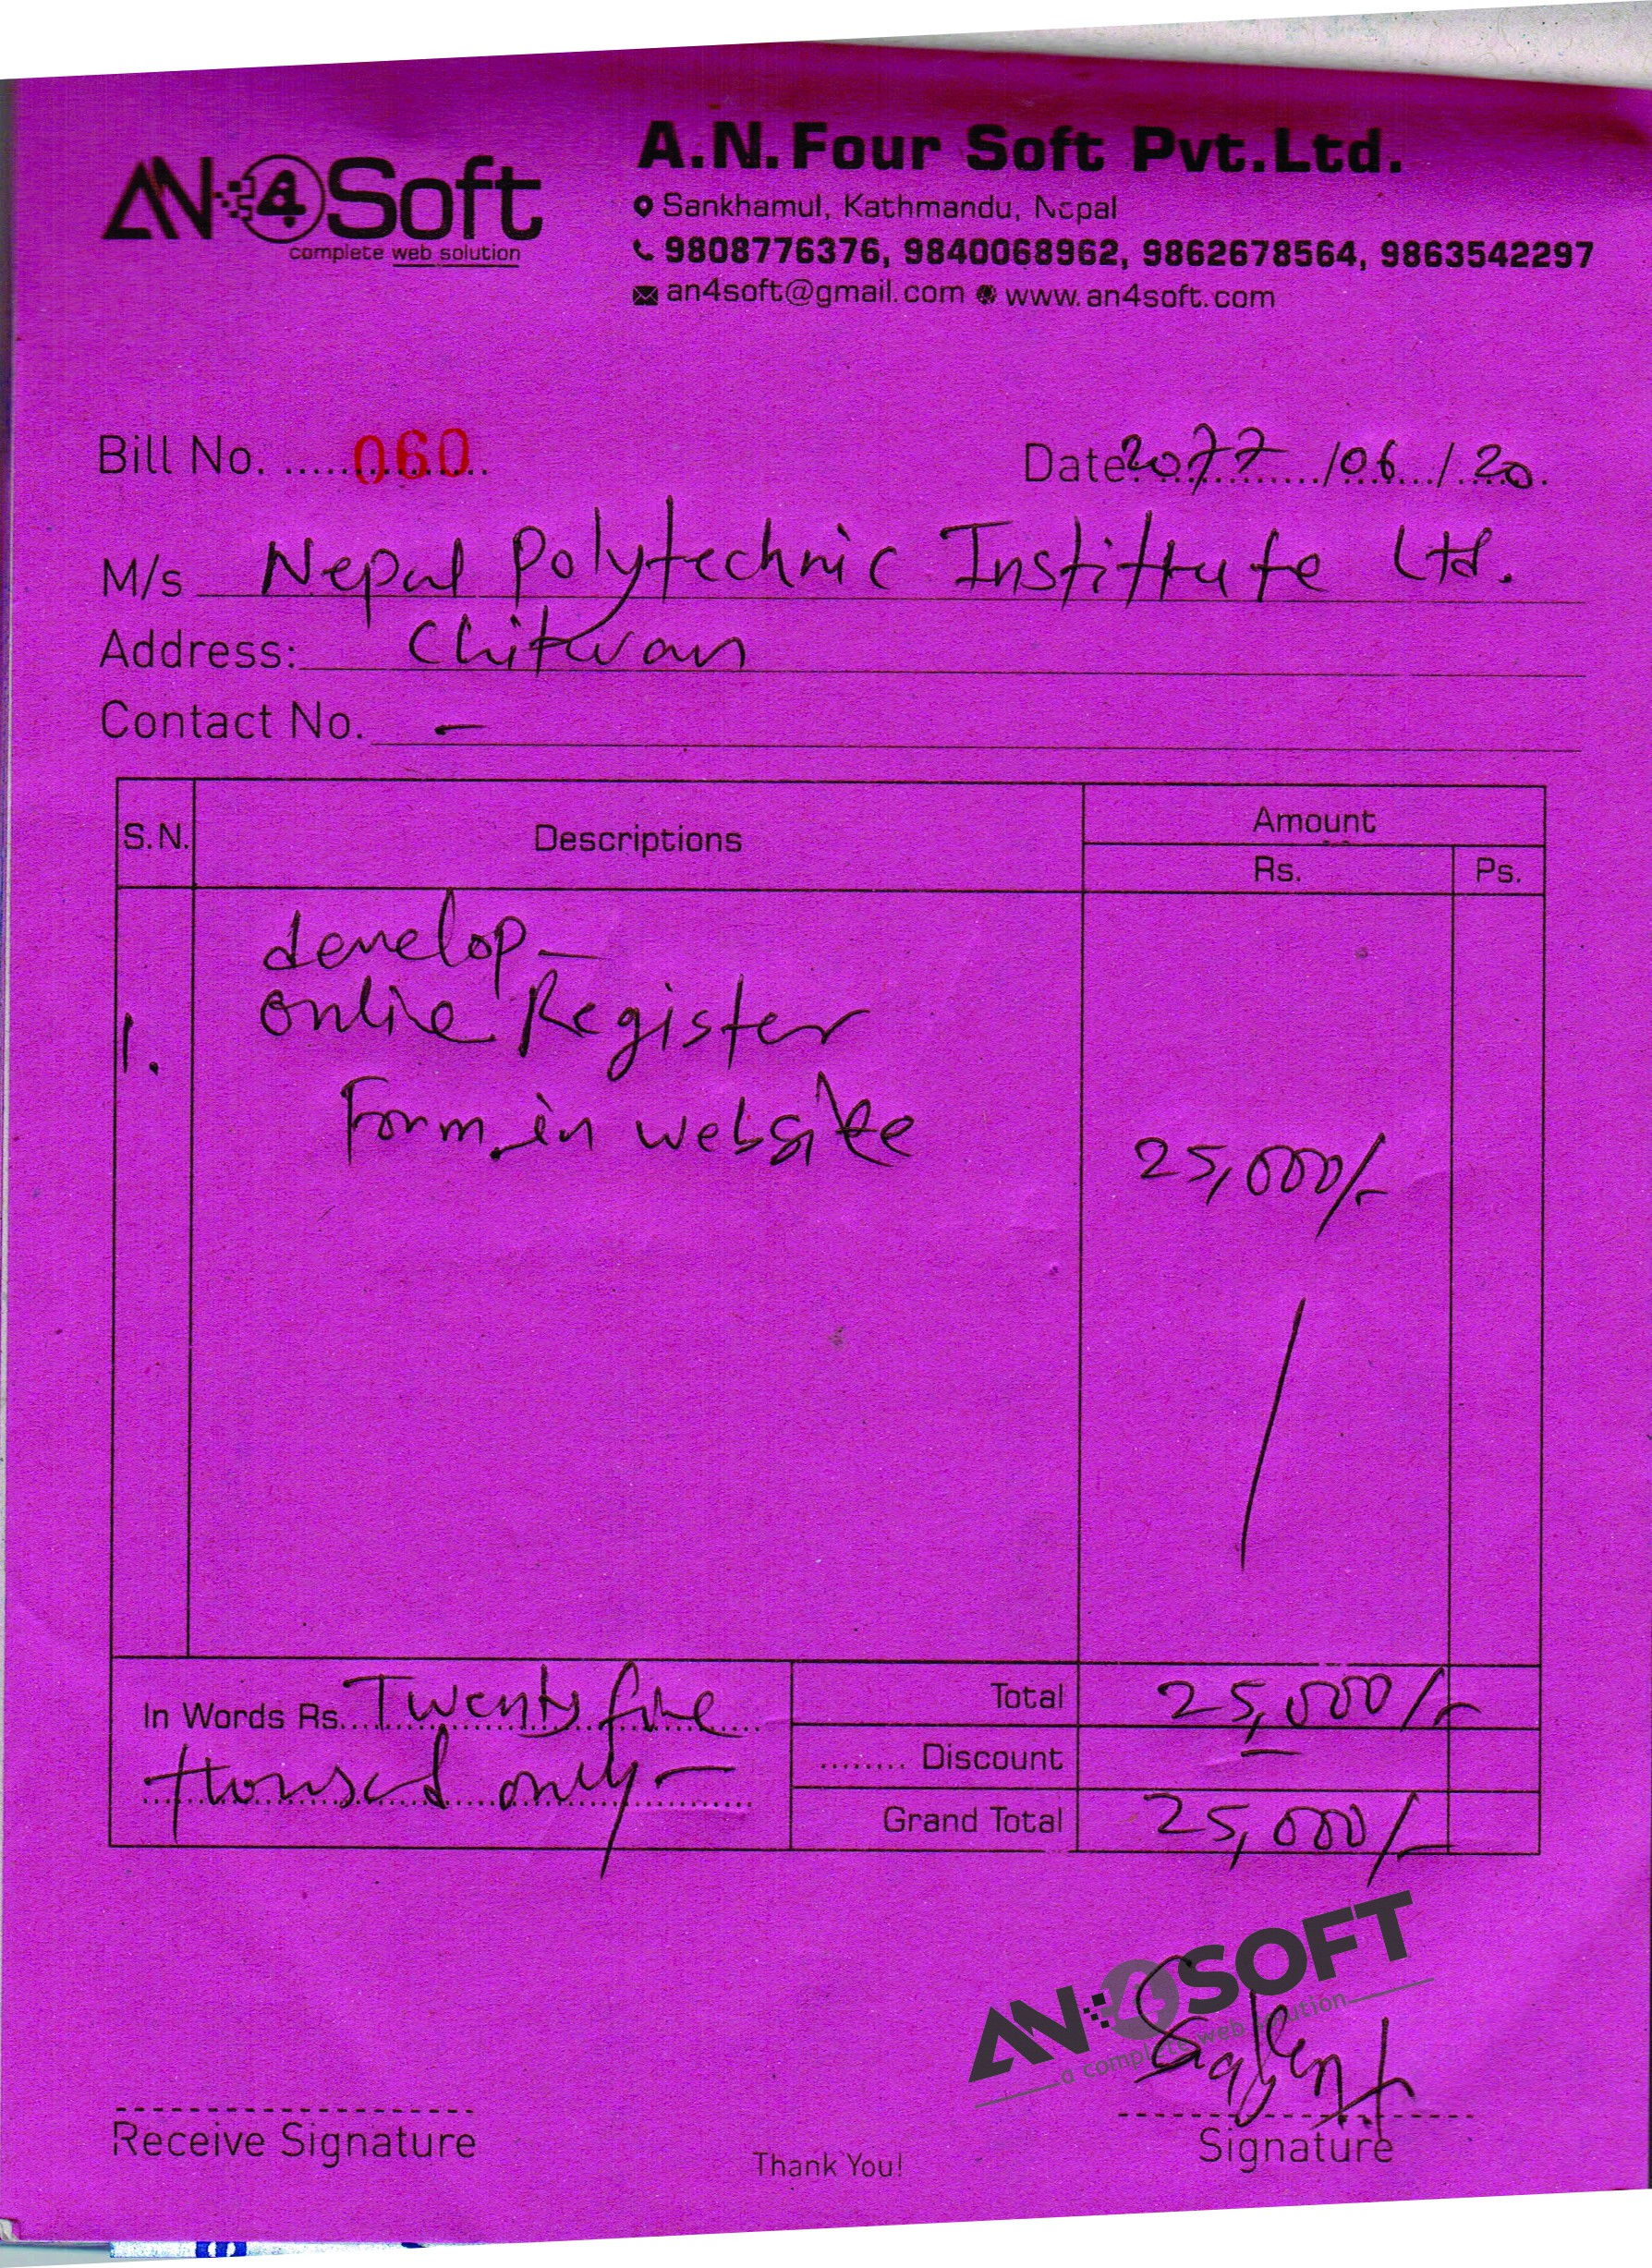 AN4Soft
complete web solution
A.N. Four Soft Pvt.Ltd.
Sankhamul, Kathmandu, Nepal
9808776376, 9840068962, 9862678564, 9863542297
an4soft@gmail.com www.an4soft.com
Bill No. 060
Date: 2077/06/20
M/s Nepal Polytechnic Instittute Ltd.
Address: Chitwan
Contact No. -
S.N. Descriptions Amount
Rs. Ps.
develop
1. online Register
Form in website 25,000/-
In Words Rs. Twenty five Total 25,000/-
only Discount -
Grand Total 25,000/-
AN4SOFT
a complete web solution
Receive Signature
Thank You!
Signature